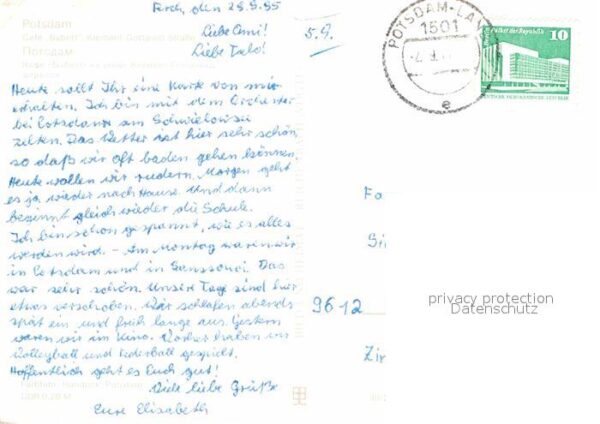 Ferch, den 28.8.85
Liebe Omi!
5.9.
Liebe Talo!
Heute sollt Ihr eine Karte von mir
erhalten. Ich bin mit dem Orchester
bei Potsdam am Schwielowsee
zelten. Das Wetter ist hier sehr schön,
so daß wir oft baden gehen können.
Heute wollen wir rudern. Morgen geht
es ja wieder nach Hause. Und dann
beginnt gleich wieder die Schule.
Ich bin schon gespannt, wie es alles
werden wird. - Am Montag waren wir
in Potsdam und in Sanssouci. Das
war sehr schön. Unsere Tage sind hier
etwas verschoben. Wir schlafen abends
spät ein und früh lange aus. Gestern
waren wir im Kino. Vorher haben wir
Volleyball und Federball gespielt.
Hoffentlich geht es Euch gut!
Viele liebe Grüße
Eure Elisabeth
Potsdam
Потсдам
POTSDAM-LAND
1501
e
10
Fa
9612
privacy protection
Datenschutz